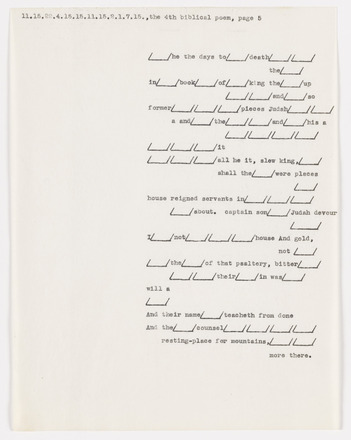 11.15.22.4.15.15.11.15.2.1.7.15.,the 4th biblical poem, page 5
/____/he the days to/____/death/____//____/
the/____/
in/____/book/____/of/____/king the/____/up
/____//____/and/____/so
former/____//____//____/pieces Judah/____//____/
a and/____/the/____//____/and/____/his a
/____//____//____//____/
/____//____//____/it
/____//____//____//____/all he it, slew king,/____/
shall the/____/were pieces
/____/
house reigned servants in/____//____//____//____/
/____/about. captain son/____/ Judah devour
/______/
I/____/not/____//____//____/house And gold,
not /____/
/____/the/____/of that psaltery, bitter/____/
/____//____/their/____/in was/____/
will a
/____/
And their name/____/teacheth from done
And the/____/counsel/____//____//____//____/
resting-place for mountains,/____//____/
more there.